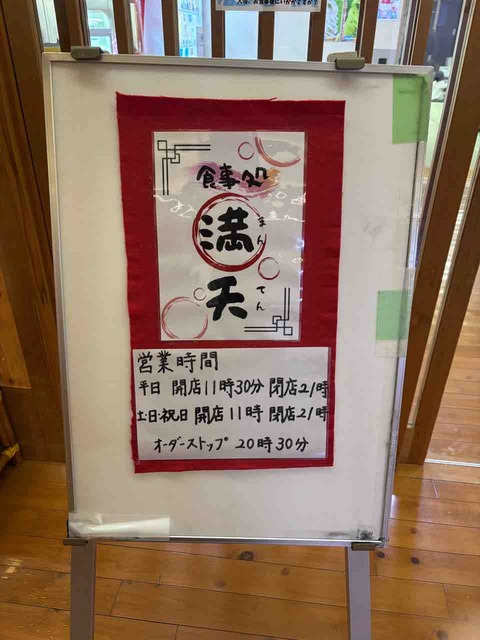 入浴、お食事後にいかがですか?
食事処
満天
まんてん
営業時間
平日 開店11時30分 閉店21時
土・日・祝日 開店11時 閉店21時
オーダーストップ 20時30分